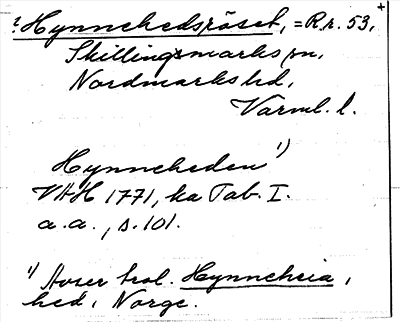 ? Hynnehedsröset, = R.r. 53,
Skillingsmarks sn,
Nordmarks hd,
Värml. l.
Hynneheden 1)
VAH 1771, ka Tab. I.
a.a., s. 101.
1) Avser trol. Hynneheia,
hed i Norge.